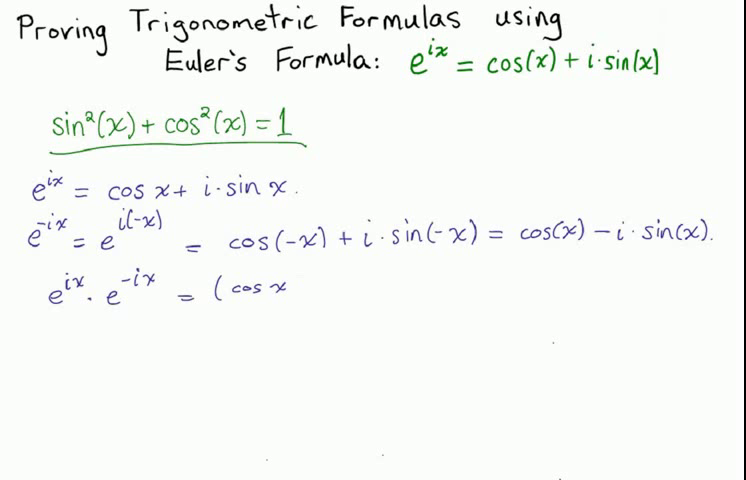 Proving Trigonometric Formulas using
Euler's Formula: e^{ix} = cos(x) + i·sin(x)
sin²(x) + cos²(x) = 1
e^{ix} = cos x + i·sin x.
e^{-ix} = e^{i(-x)} = cos(-x) + i·sin(-x) = cos(x) - i·sin(x).
e^{ix} · e^{-ix} = (cos x